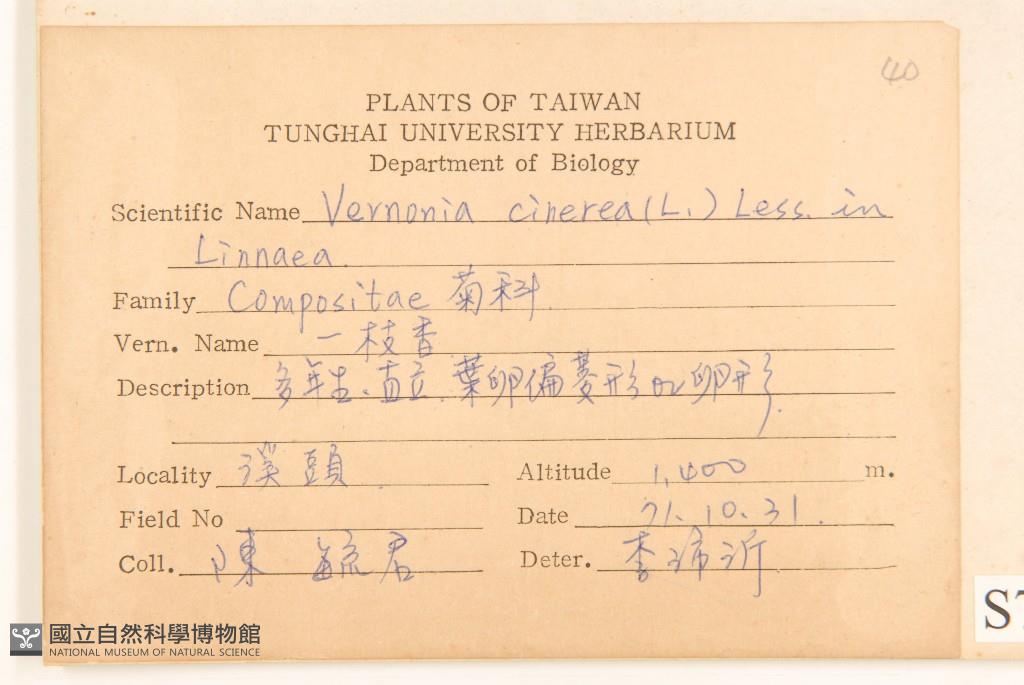 40
PLANTS OF TAIWAN
TUNGHAI UNIVERSITY HERBARIUM
Department of Biology
Scientific Name Vernonia cinerea (L.) Less. in
Linnaea.
Family Compositae 菊科
Vern. Name 一枝香
Description 多年生、直立、葉卵偏菱形or卵形.
Locality 溪頭 Altitude 1,400 m.
Field No Date 71.10.31.
Coll. 陳毓君 Deter. 李沂
國立自然科學博物館
NATIONAL MUSEUM OF NATURAL SCIENCE